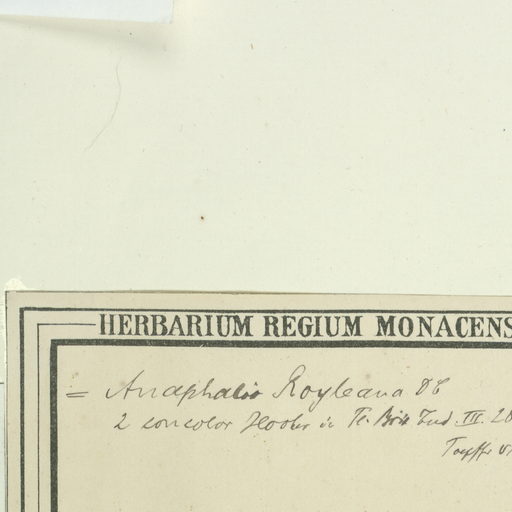 HERBARIUM REGIUM MONACENS
= Anaphalis Royleana DC
2 concolor Hooker in Fl. Brit Ind. III. 28